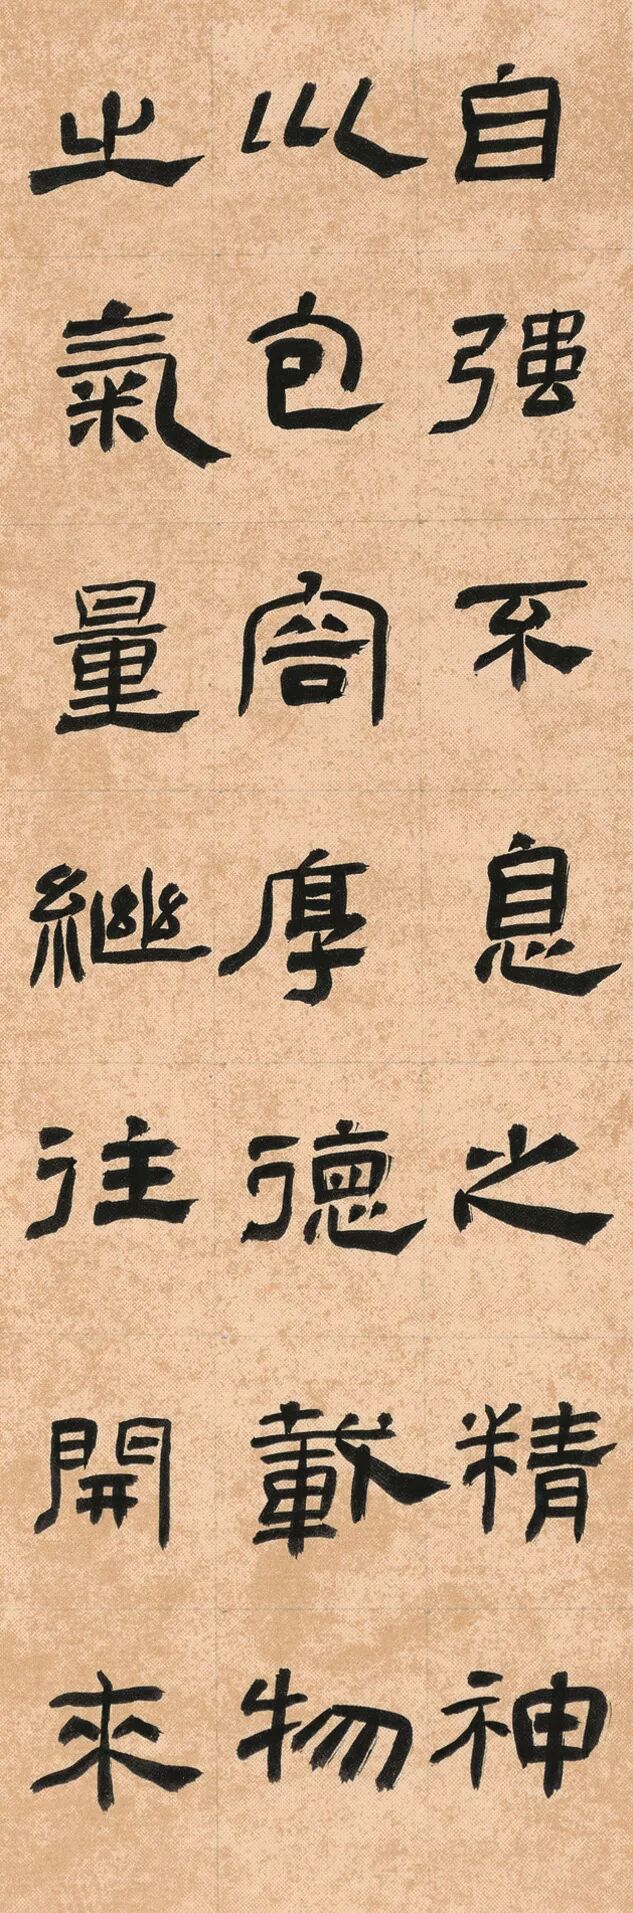 自强不息之精神
以包容厚德載物
之氣量繼往開來